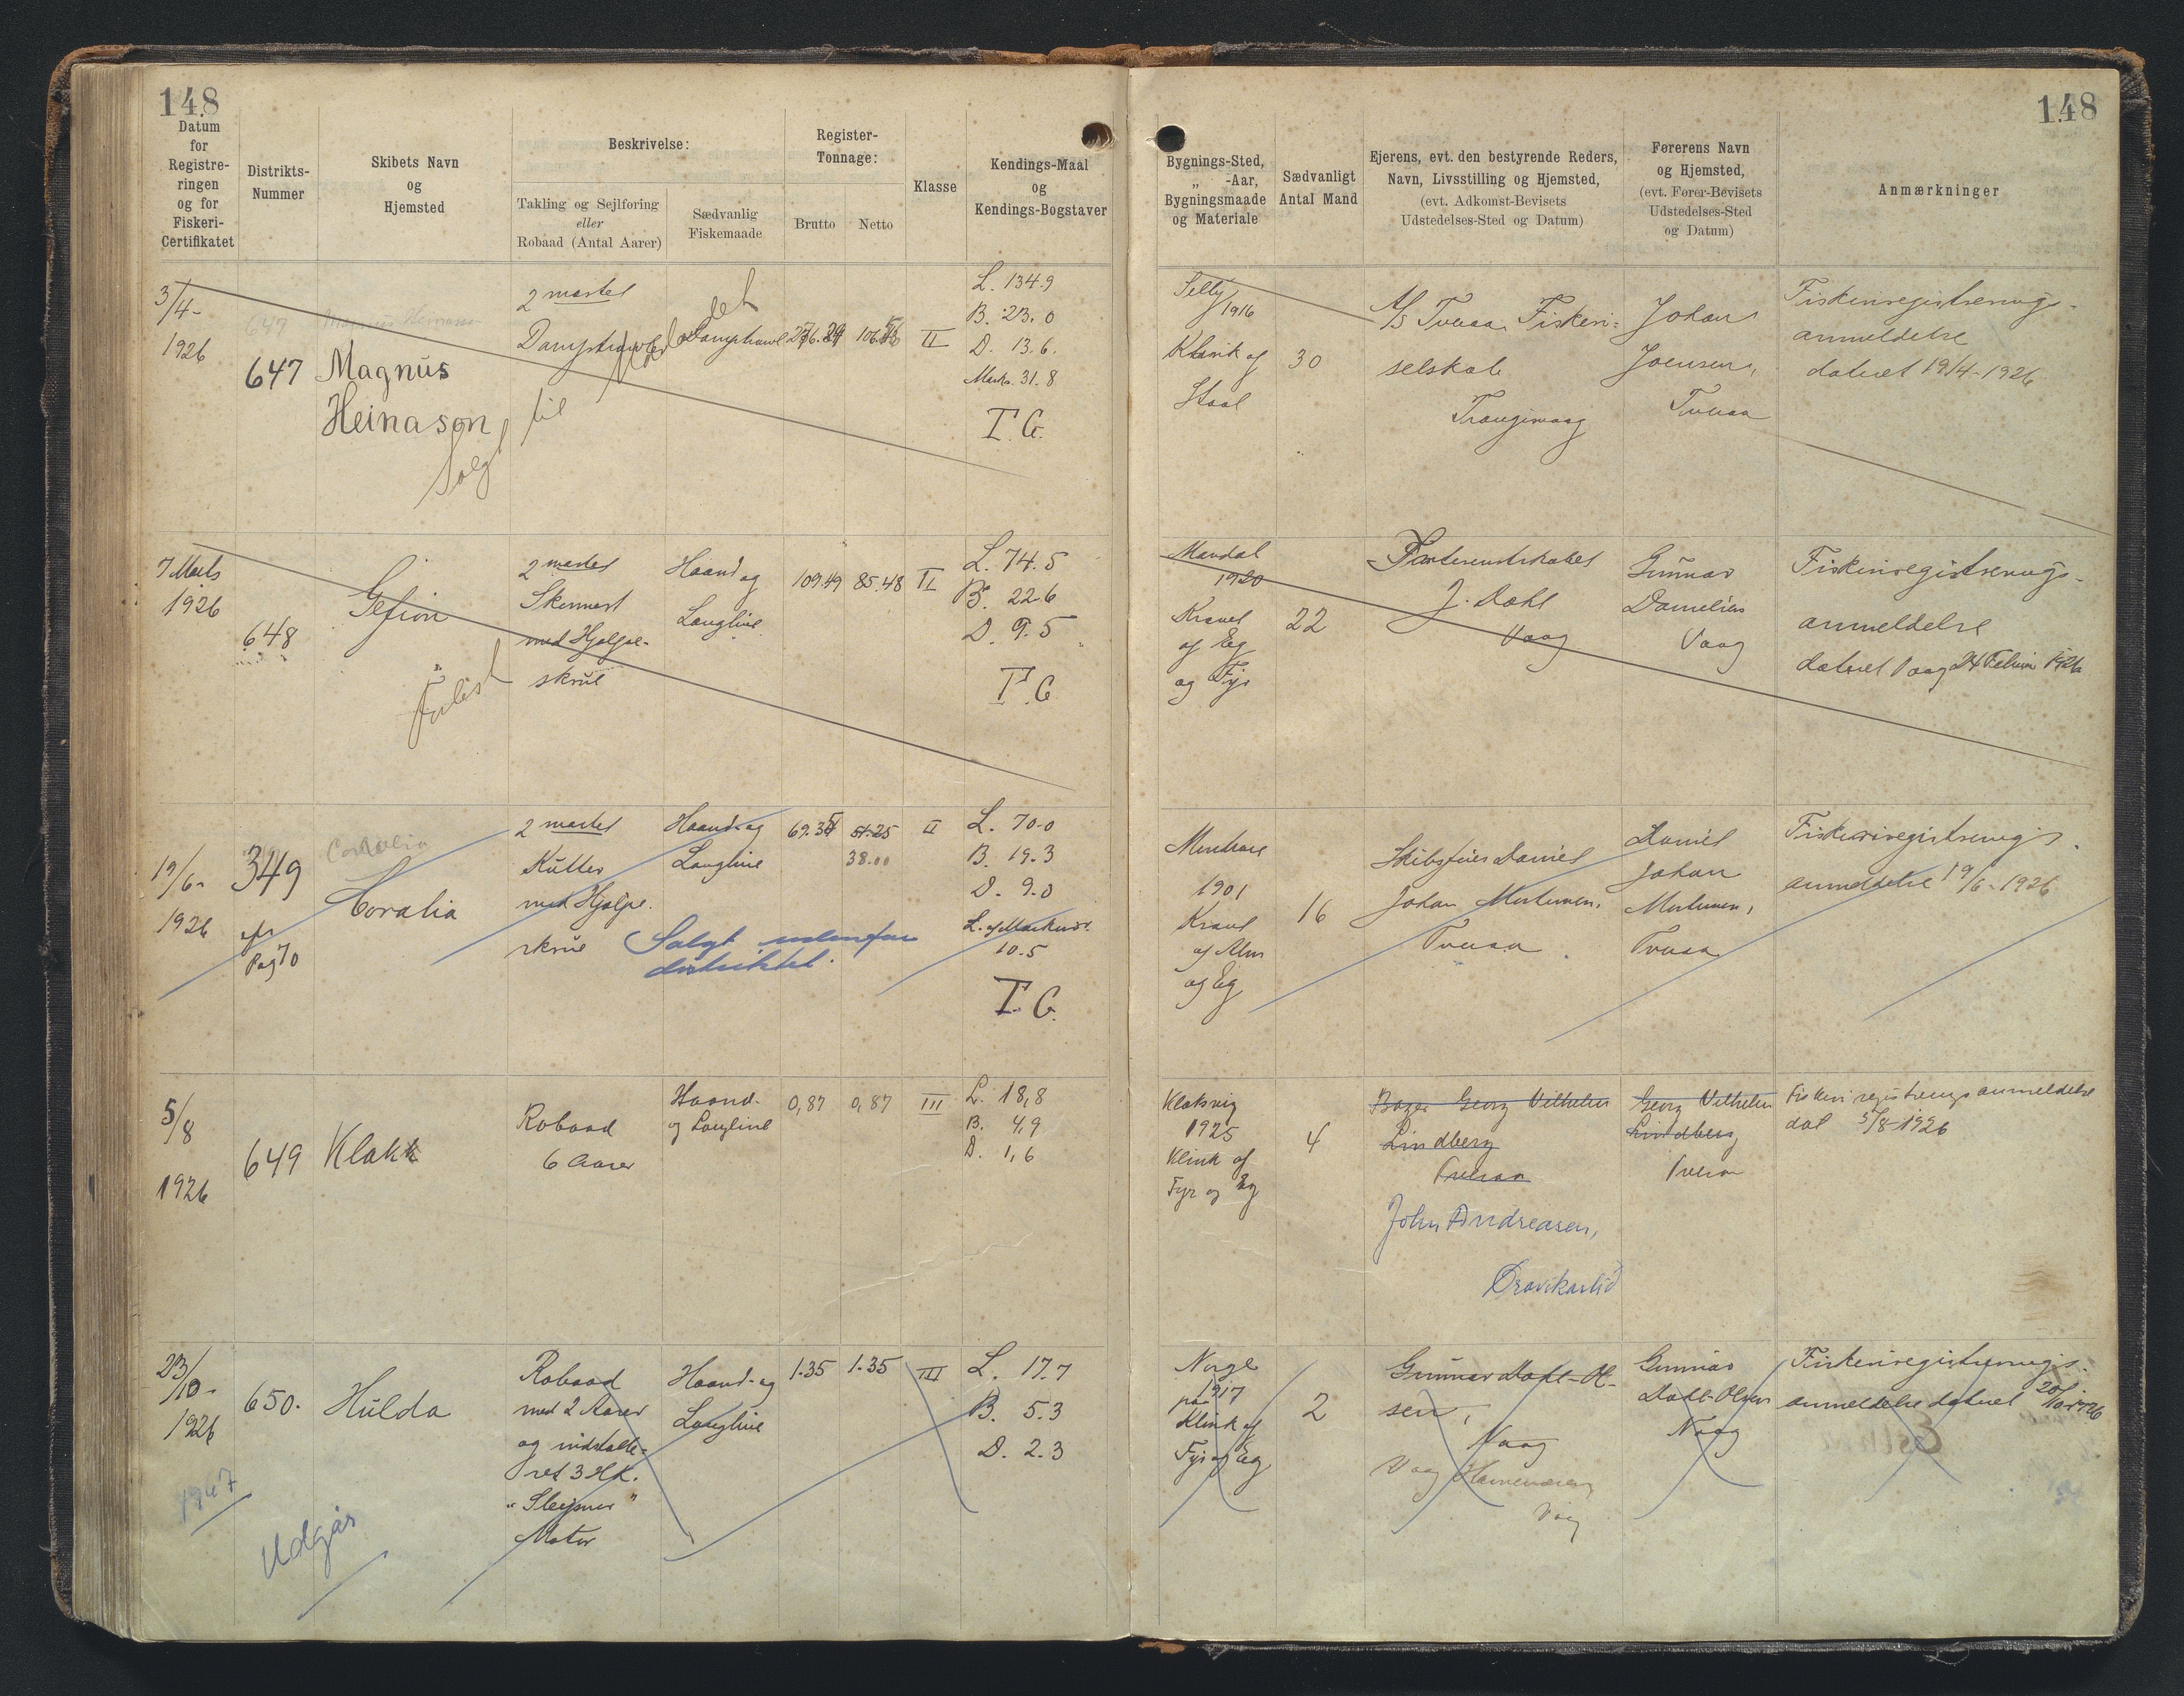 148
Datum
for
Registre-
ringen
og for
Fiskeri-
Certifikatet
Distrikts-
Nummer
Skibets Navn
og
Hjemsted
Beskrivelse:
Takling og Sejlføring
eller
Robaad (Antal Aarer)
Sædvanlig
Fiskemaade
Register-
Tonnage:
Brutto
Netto
Klasse
Kendings-Maal
og
Kendings-Bogstaver
3/4-
1926
647
Magnus
Heinason
2 mastet
Damptrawler
Damptrawl
II
L. 134.9
B. 23.0
D. 13.6.
Mask. 31.8
T.G.
Solgt til
7 Marts
1926
648
Gefion
2 mastet
Skonnert
med Hjælpe-
skrue
Haand og
Langline
109.49
85.48
II
L. 74.5
B. 22.6
D. 9.5
T.G
Forlist
19/6-
1926
349
Pag 70
Coralia
Coralia
2 mastet
Kutter
med Hjælpe-
skrue
Haand-og
Langline
51.25
38.00
II
L. 70.0
B. 19.3
D. 9.0
L. af Maskinr.
10.5
T.G.
Solgt udenfor
distriktet.
5/8
1926
649
Klakk
Robaad
6 Aarer
Haand-
og Langline
0,87
0,87
III
L. 18,8
B. 4,9
D. 1,6
23/10-
1926
650.
Hulda
Robaad
med 2 Aarer
og indstalle-
ret 3 HK.
"Sleipner"
Motor
Haand-og
Langline
1.35
1.35
III
L. 17.7
B. 5.3
D. 2.3
1947
Udgår
148
Bygnings-Sted,
„ -Aar,
Bygningsmaade
og Materiale
Sædvanligt
Antal Mand
Ejerens, evt. den bestyrende Reders,
Navn, Livsstilling og Hjemsted,
(evt. Adkomst-Bevisets
Udstedelses-Sted og Datum)
Førerens Navn
og Hjemsted,
(evt. Fører-Bevisets
Udstedelses-Sted
og Datum)
Anmærkninger
Selby
1916
af
Staal
30
A/S Tveraa Fiskeri-
selskab
Trangisvaag
Johan
Joensen,
Tveraa
Fiskeriregistrerings-
anmeldelse
dateret 19/4-1926
Mandal
1920
Kravel
af Eg
og Fyr
22
Interessentskabet
J. Dahl
Vaag
Gunnar
Danielsen
Vaag
Fiskeriregistrerings-
anmeldelse
dateret Vaag 24 Februar 1926
1901
Kravel
af Alm
og Eg
16
Skibsfører Daniel
Johan Mortensen,
Tveraa
Daniel
Johan
Mortensen,
Tveraa
Fiskeriregistrerings-
anmeldelse 19/6-1926
Klaksvig
1925
Klink af
Fyr og Eg
4
Bager Georg Vilhelm
Lindberg
Tveraa
John Andreasen,
Georg Vilhelm
Lindberg
Tveraa
Fiskeriregistreringsanmeldelse
dat 5/8-1926
Norge
1917
paa
Klink af
Fyr og Eg
2
Gunnar Dahl-Ol-
sen,
Vaag
Vaag
Gunnar
Dahl-Olsen
Vaag
Fiskeriregistrerings-
anmeldelse dateret 20/10-1926